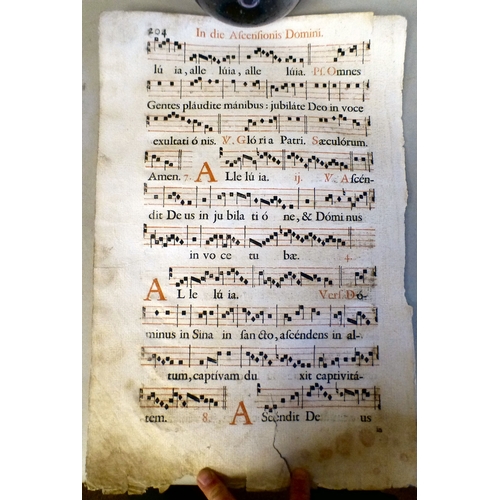 204 In die Ascensionis Domini.
lú ia, alle lúia, alle lúia. Ps. Omnes
Gentes pláudite mánibus: jubiláte Deo in voce
exultati ó nis. V. Gló ri a Patri. Sæculórum.
Amen. 7. A lle lú ia. ij. V. Ascén-
dit De us in ju bila ti ó ne, & Dómi nus
in vo ce tu bæ. 4.
A l le lú ia. Vers. Dó-
minus in Sina in san cto, ascéndens in al-
tum, captívam du xit captivitá-
tem. 8. A Scéndit De us